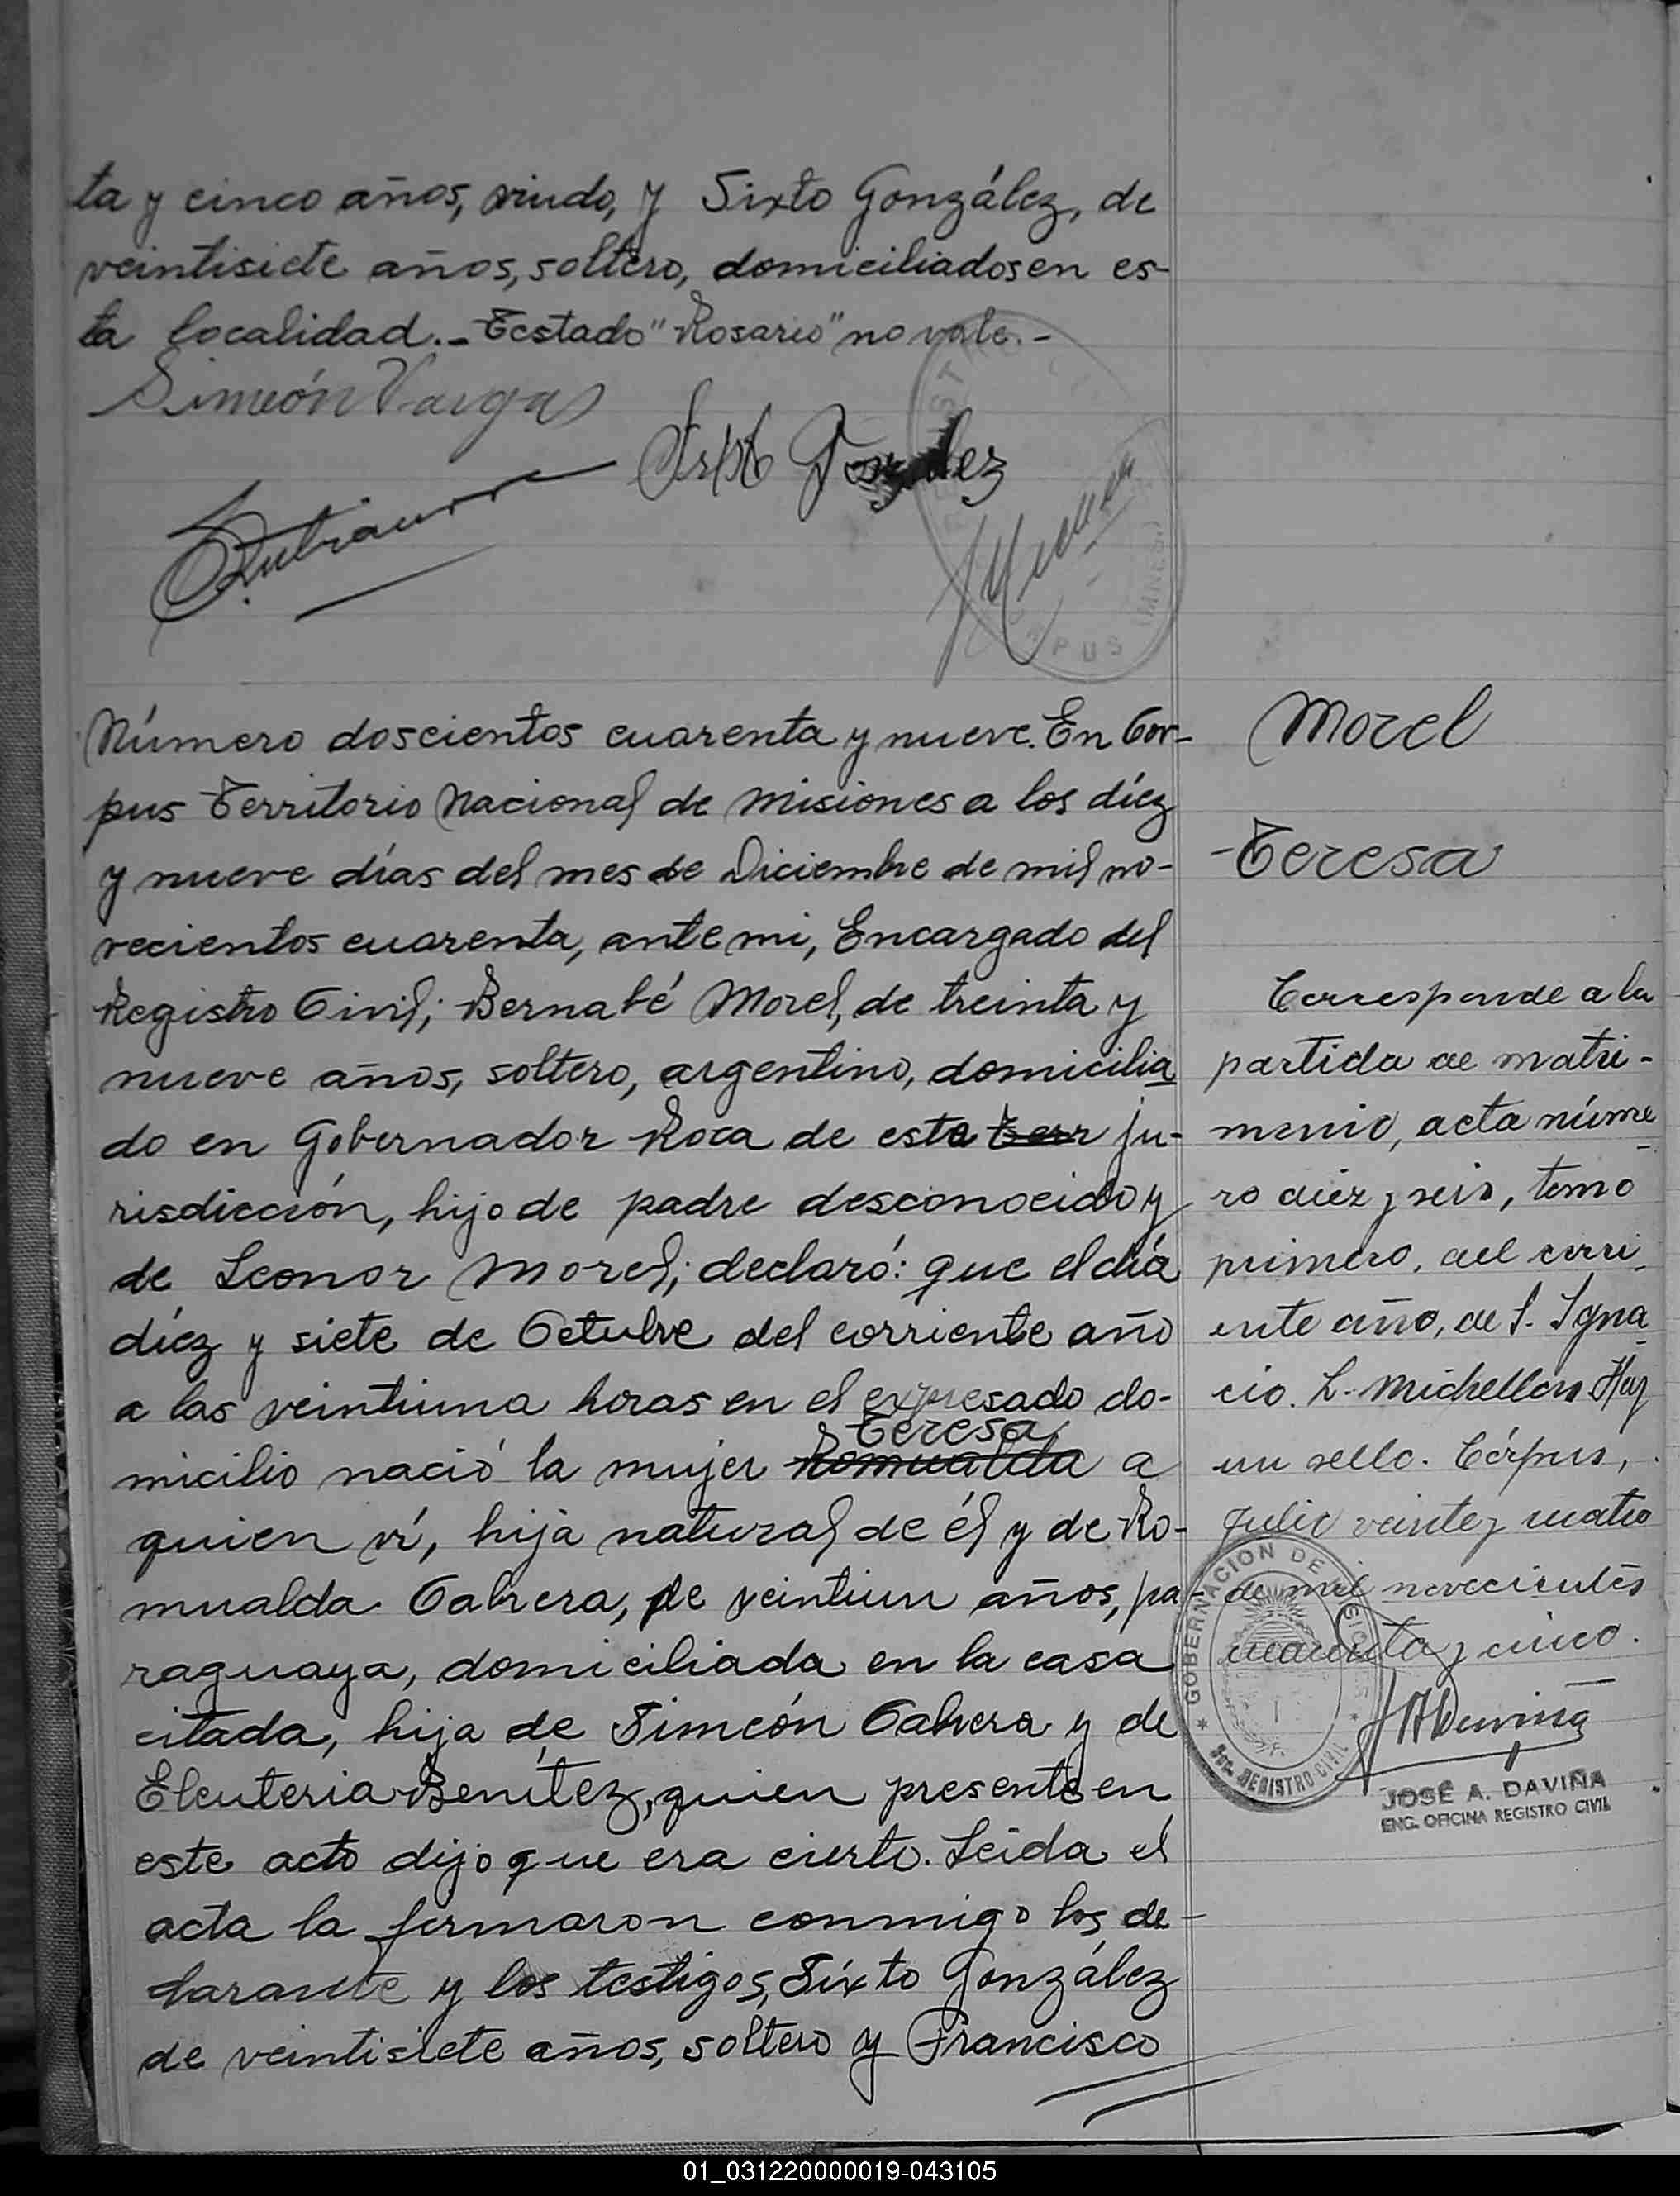 ta y cinco años, viudo, y Sixto González, de
veintisiete años, soltero, domiciliados en es-
ta localidad.- Testado "Rosario" no vale.-
Simeón Vargas
Sixto González
CORPUS (MNES)
Número doscientos cuarenta y nueve. En Cor-
pus Territorio Nacional de Misiones a los diéz
y nueve días del mes de Diciembre de mil no-
vecientos cuarenta, ante mi, Encargado del
Registro Civil; Bernabé Morel, de treinta y
nueve años, soltero, argentino, domicilia
do en Gobernador Roca de esta terr ju-
risdicción, hijo de padre desconocido y
de Leonor Morel; declaró: que el día
diéz y siete de Octubre del corriente año
a las veintiuna horas en el expresado do-
Teresa
micilio nació la mujer Romualda a
quien ví, hija natural de él y de Ro-
mualda Cabrera, de veintiun años, pa-
raguaya, domiciliada en la casa
citada, hija de Simeón Cabrera y de
Eleuteria Benítez, quien presente en
este acto dijo que era cierto. Leida el
acta la firmaron conmigo los de-
clarante y los testigos, Sixto González
de veintisiete años, soltero y Francisco
Morel
Teresa
Corresponde a la
partida de matri-
monio, acta núme
ro diez y seis, tomo
primero, del corri
ente año, de S. Igna
cio. L. Michellon Hay
un sello. Córpus,
Julio veinte y cuatro
de mil novecientos
cuarenta y cinco.
GOBERNACION DE MISIONES
REGISTRO CIVIL
JADaviña
JOSÉ A. DAVIÑA
ENC. OFICINA REGISTRO CIVIL
01_031220000019-043105